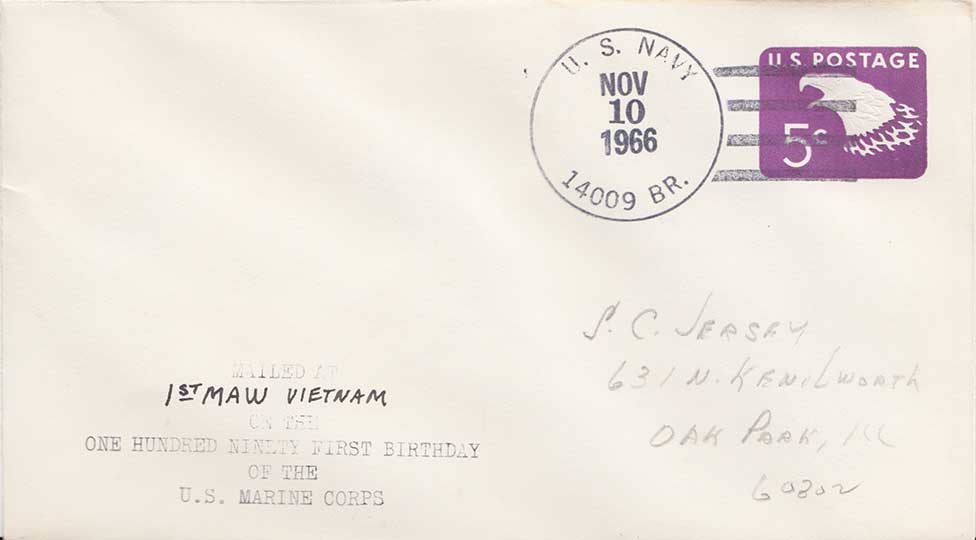 U. S. NAVY
NOV
10
1966
14009 BR.
U.S. POSTAGE
5¢
S. C. JERSEY
631 N. KENILWORTH
OAK PARK, ILL
60302
MAILED AT
1ST MAW VIETNAM
ON THE
ONE HUNDRED NINLTY FIRST BIRTHDAY
OF THE
U.S. MARINE CORPS